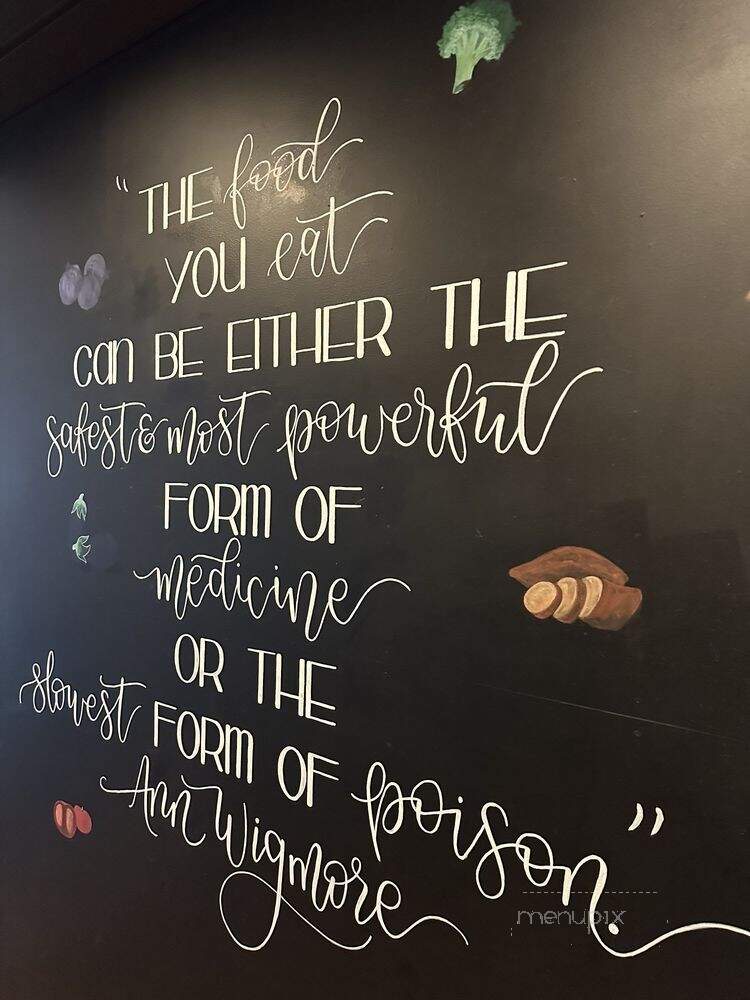 "THE food
YOU eat
can BE EITHER THE
safest & most powerful
FORM OF
medicine
OR THE
slowest FORM OF poison."
Ann Wigmore
menupix